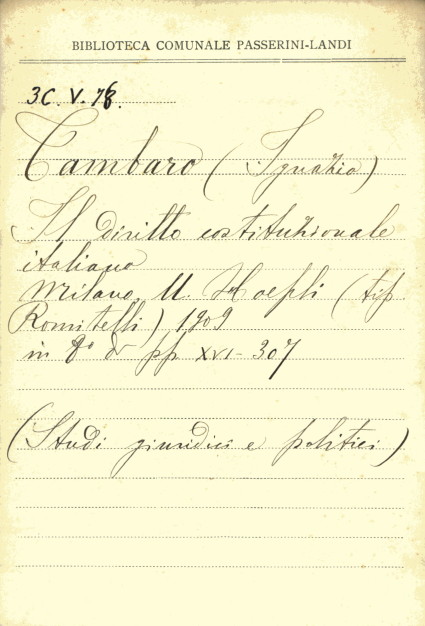 BIBLIOTECA COMUNALE PASSERINI-LANDI
3C. V. 78.
Tambaro (Ignazio)
Il diritto costituzionale
italiano
Milano, U. Hoepli (tip
Romitelli) 1909
in 8° pp XVI-307
(Studi giuridici e politici)